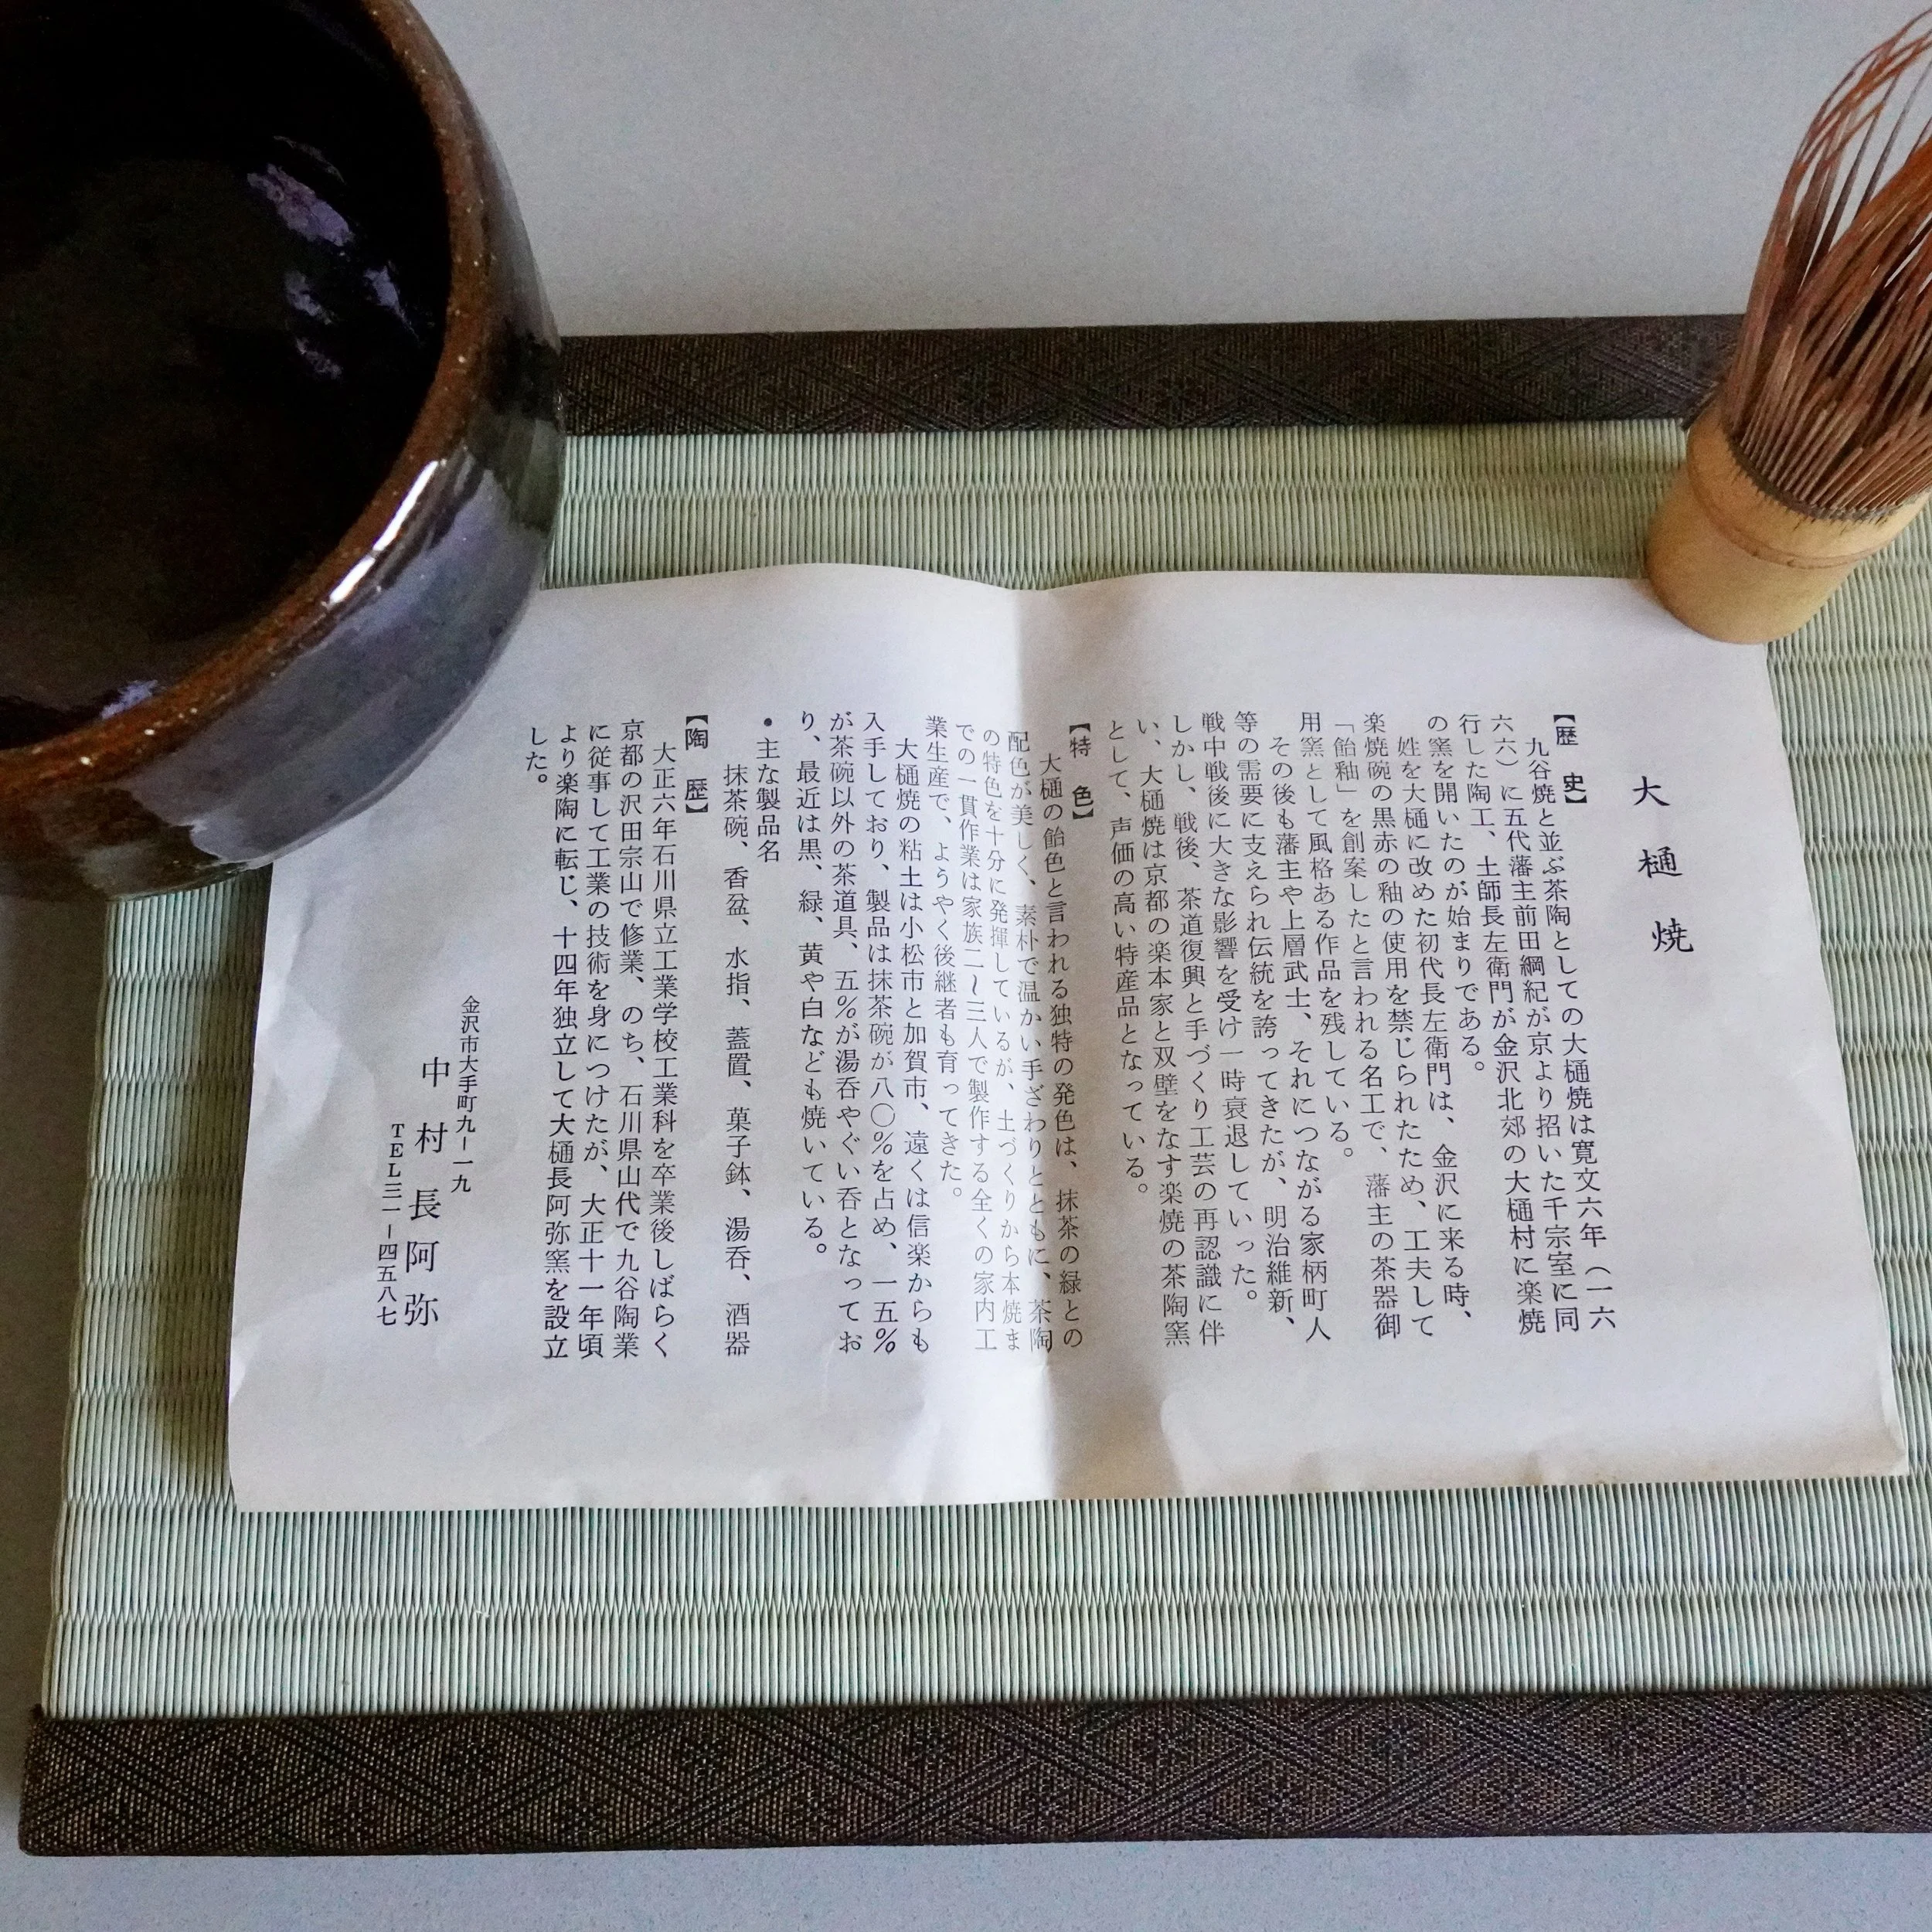 大樋焼
【歴史】
九谷焼と並ぶ茶陶としての大樋焼は寛文六年(一六
六六)に五代藩主前田綱紀が京より招いた千宗室に同
行した陶工、土師長左衛門が金沢北郊の大樋村に楽焼
の窯を開いたのが始まりである。
姓を大樋に改めた初代長左衛門は、金沢に来る時、
楽焼碗の黒赤の釉の使用を禁じられたため、工夫して
「飴釉」を創案したと言われる名工で、藩主の茶器御
用窯として風格ある作品を残している。
その後も藩主や上層武士、それにつながる家柄町人
等の需要に支えられ伝統を誇ってきたが、明治維新、
戦中戦後に大きな影響を受け一時衰退していった。
しかし、戦後、茶道復興と手づくり工芸の再認識に伴
い、大樋焼は京都の楽本家と双璧をなす楽焼の茶陶窯
として、声価の高い特産品となっている。
【特色】
大樋の飴色と言われる独特の発色は、抹茶の緑との
配色が美しく、素朴で温かい手ざわりとともに、茶陶
の特色を十分に発揮しているが、土づくりから本焼ま
での一貫作業は家族二〜三人で製作する全くの家内工
業生産で、ようやく後継者も育ってきた。
大樋焼の粘土は小松市と加賀市、遠くは信楽からも
入手しており、製品は抹茶碗が八〇%を占め、一五%
が茶碗以外の茶道具、五%が湯呑やぐい呑となってお
り、最近は黒、緑、黄や白なども焼いている。
•主な製品名
抹茶碗、香盆、水指、蓋置、菓子鉢、湯呑、酒器
【陶歴】
大正六年石川県立工業学校工業科を卒業後しばらく
京都の沢田宗山で修業、のち、石川県山代で九谷陶業
に従事して工業の技術を身につけたが、大正十一年頃
より楽陶に転じ、十四年独立して大樋長阿弥窯を設立
した。
金沢市大手町九ー一九
中村長阿弥
TEL三一ー四五八七